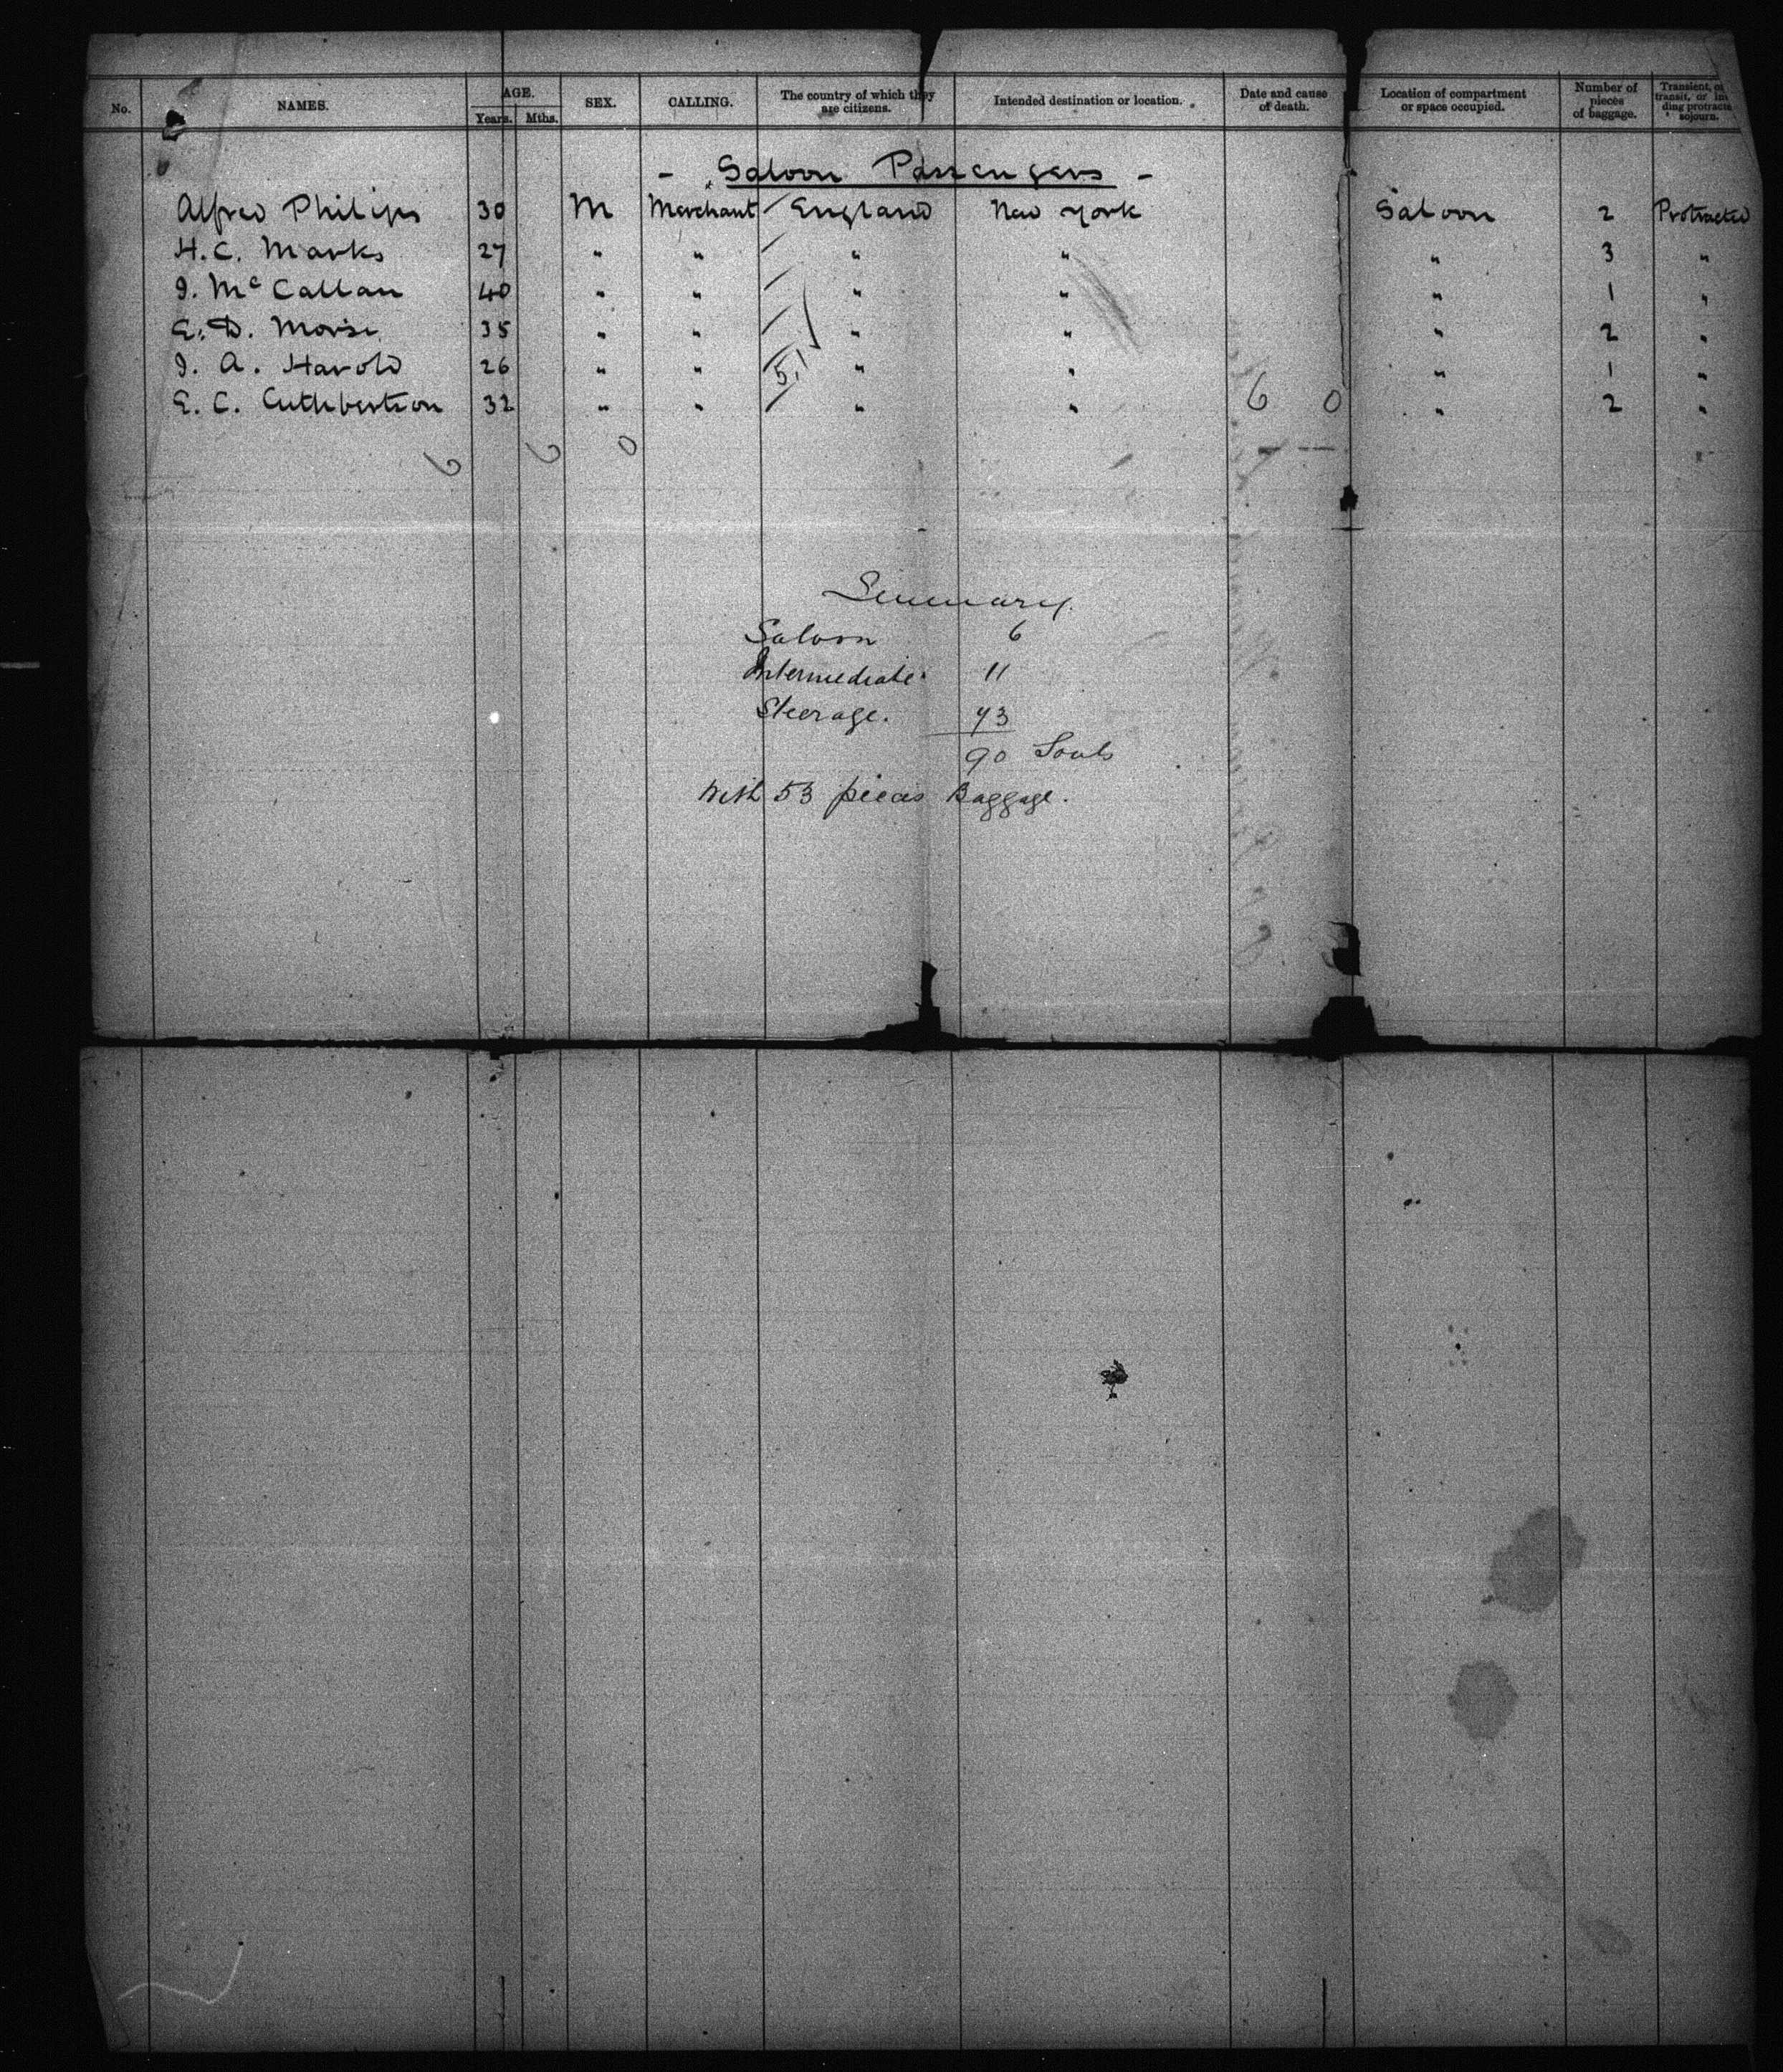 No. NAMES. AGE. Years. Mths. SEX. CALLING. The country of which they are citizens. Intended destination or location. Date and cause of death. Location of compartment or space occupied. Number of pieces of baggage. Transient, transit, or protracted sojourn.
- Saloon Passengers -
Alfred Philips 30 M Merchant England New York Saloon 2 Protracted
H. C. Marks 27 " " " " " 3 "
J. McCallan 40 " " " " " 1 "
E. D. Morse 35 " " " " " 2 "
J. A. Harold 26 " " 5,1 " " " 1 "
E. C. Cuthbertson 32 " " " " 6 0 " 2 "
6 6 0
Summary.
Saloon 6
Intermediate 11
Steerage. 73
90 Souls
With 53 pieces Baggage.